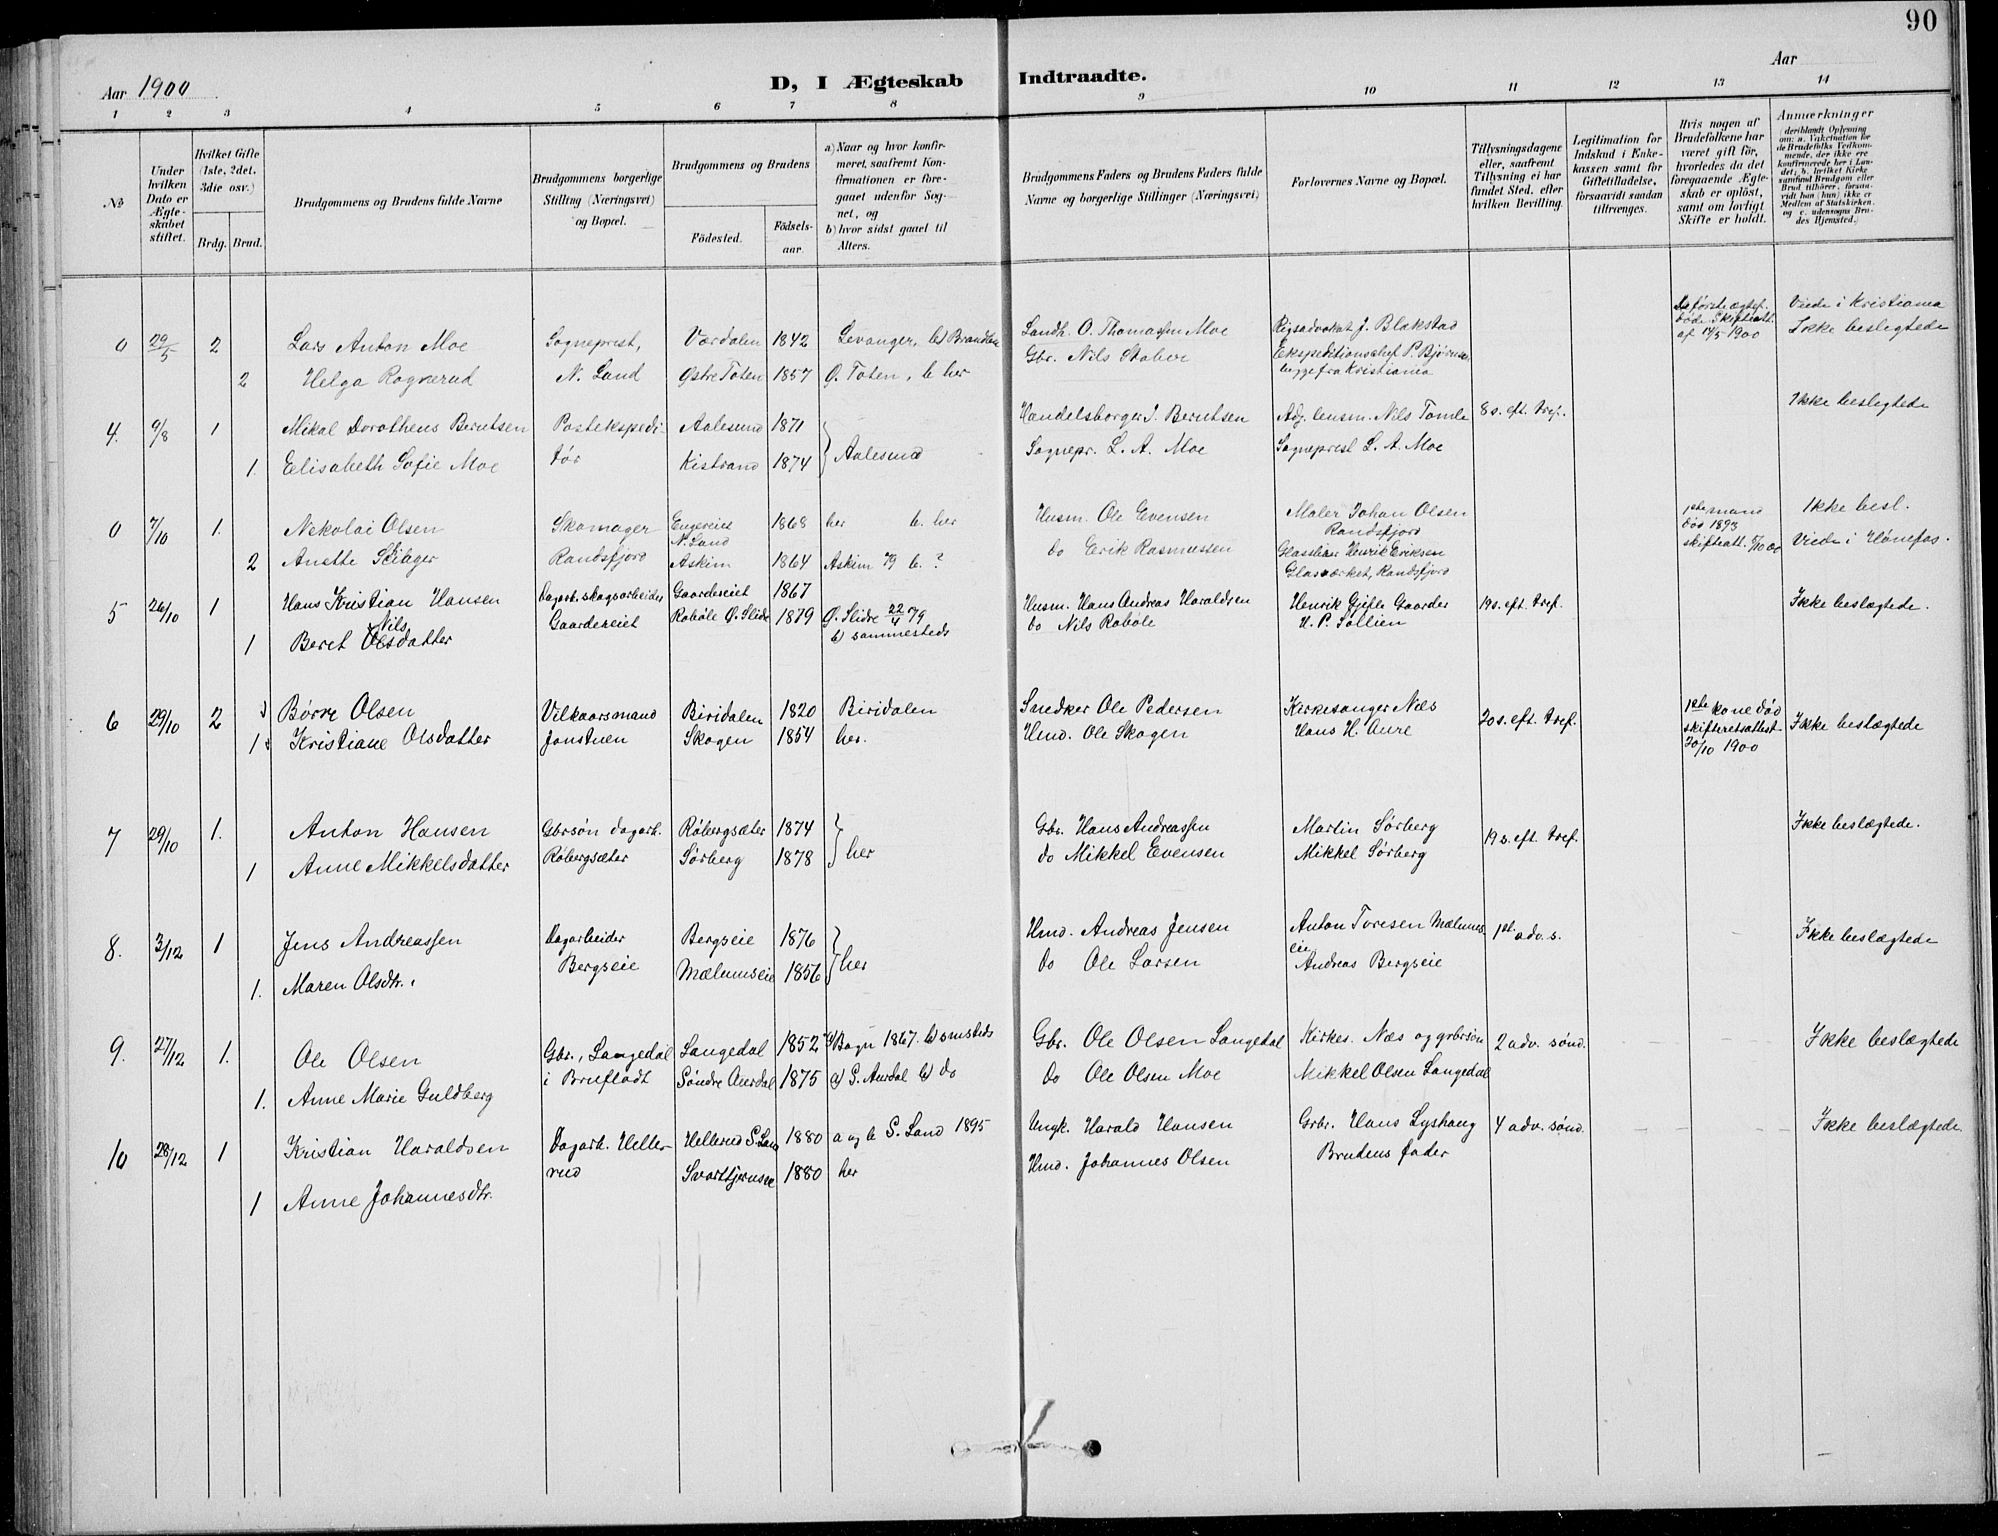 90
Aar 1900
D, I Ægteskab Indtraadte.
Aar
1 2 3 4 5 6 7 8 9 10 11 12 13 14
No
Under hvilken Dato er Ægteskabet stiftet.
Hvilket Gifte (1ste, 2det, 3die osv.)
Brdg. Brud.
Brudgommens og Brudens fulde Navne
Brudgommens borgerlige Stilling (Næringsvei) og Bopæl.
Brudgommens og Brudens
Födested. Födselsaar.
a) Naar og hvor konfirmeret, saafremt Konfirmationen er foregaaet udenför Sognet, og
b) hvor sidst gaaet til Alters.
Brudgommens Faders og Brudens Faders fulde Navne og borgerlige Stillinger (Næringsvei)
Forlovernes Navne og Bopæl.
Tillysningsdagene eller, saafremt Tillysning ei har fundet Sted, efter hvilken Bevilling.
Legitimation for Indskud i Enkekassen samt för Giftetilladelse, forsaavidt saadan tiltrænges.
Hvis nogen af Brudefolkene har været gift för, hvorledes da det foregaaende Ægteskab er oplöst, samt om lovligt Skifte er holdt.
Anmærkninger (deriblandt Oplysning om: a. Vakcination for de Brudefolks Vedkommende, der ikke ere konfirmerede her i Landet; b. hvilket Kirkesamfund Brudgom eller Brud tilhörer, forsaavidt han (hun) ikke er Medlem af Statskirken, og c. udensogns Brudes Hjemsted.)
0 29/5 2 Lars Anton Moe Sogneprest, Værdalen 1842 Levanger, b) Brandbu Landh. O. Thomassen Moe Rigsadvokat J. Blakstad død Skifteatt. af 14/5 1900 Viede i Kristiania Ikke beslegtede
2 Helga Rognerud N. Land Østre Toten 1857 Ø. Toten, b her Gbr. Nils Staber Ekspeditionschef P. Bjørnsen begge fra Kristiania
4. 9/8 1 Mikal Dorotheus Berntsen Postekspedi- Aalesund 1871 Handelsborger J. Berntsen Adj. lensm. Nils Tomle 8 s. eft. tref. Ikke beslegtede
1. Elisabeth Sofie Moe tör Kistrand 1874 } Aalesund Sognepr. L. A. Moe Sogneprest L. A. Moe
0 7/10 1. Nekolai Olsen Skomager Engereiet N. Land 1868 her b. her Husm. Ole Evensen Maler Johan Olsen Randsfjord 1ste mand död 1893 skifteatt. 5/10 00 Ikke besl.
2 Anette Skiager Randsfjord Askim 1864 Askim 79 b. ? do Erik Rasmussen Glassliber Henrik Eriksen Glasværket, Randsfjord Viede i Hønefos.
5 26/10 1 Hans Kristian Hansen Dagarb. skogsarbeider Gaardereiet 1867 Husm. Hans Andreas Haraldsen Henrik Gjefle Gaarder 19 s. eft. tref. Ikke beslægtede.
1 Beret Nilsdatter Gaardereiet Robøle Ø. Slidre 1879 Ø. Slidre 22/4 79 b) sammesteds do Nils Robøle H. P. Sollien
6 29/10 2 Børre Olsen Vilkaarsmand Biridalen 1820 Biridalen Snedker Ole Pedersen Kirkesanger Næs 20 s. eft. tref. 1ste kone död skifteretsattest 20/10 1900 Ikke beslægtede
1 Kristiane Olsdatter Jonstuen Skogen 1854 her. Hmd. Ole Skogen Hans H. Aure
7 29/10 1. Anton Hansen Gbrsön dagarb. Röbergsæter 1874 Gbr. Hans Andreassen Martin Sörberg 19 s. eft. tref. Ikke beslægtede.
1 Anne Mikkelsdatter Röbergsæter Sörberg 1878 } her do Mikkel Evensen Mikkel Sörberg
8. 3/12 1 Jens Andreassen Dagarbeider Bergseie 1876 Hmd. Andreas Jensen Anton Toresen Mælumseie 1ste adv. s. Ikke beslægtede
1. Maren Olsdtr. Bergseie Mælumseie 1856 } her do Ole Larsen Andreas Bergseie
9. 27/12 1. Ole Olsen Gbr., Langedal Langedal 1852 a) Bagn 1867. b) smsteds Gbr. Ole Olsen Langedal Kirkes. Næs og grbrsön 2 adv. sönd. Ikke beslægtede
1. Anne Marie Guldberg i Bruflodt Söndre Aurdal 1875 a) S. Aurdal b) do do Ole Olsen Moe Mikkel Olsen Langedal
10 28/12 1 Kristian Haraldsen Dagarb. Helle- Hellerud S. Land 1880 a og b S. Land 1895 Ungk. Harald Hansen Grbr. Hans Lyshaug 4 adv. sönd. Ikke beslægtede
1 Anne Johannesdtr. rud Svarttjernseie 1880 her Hmd. Johannes Olsen Brudens fader